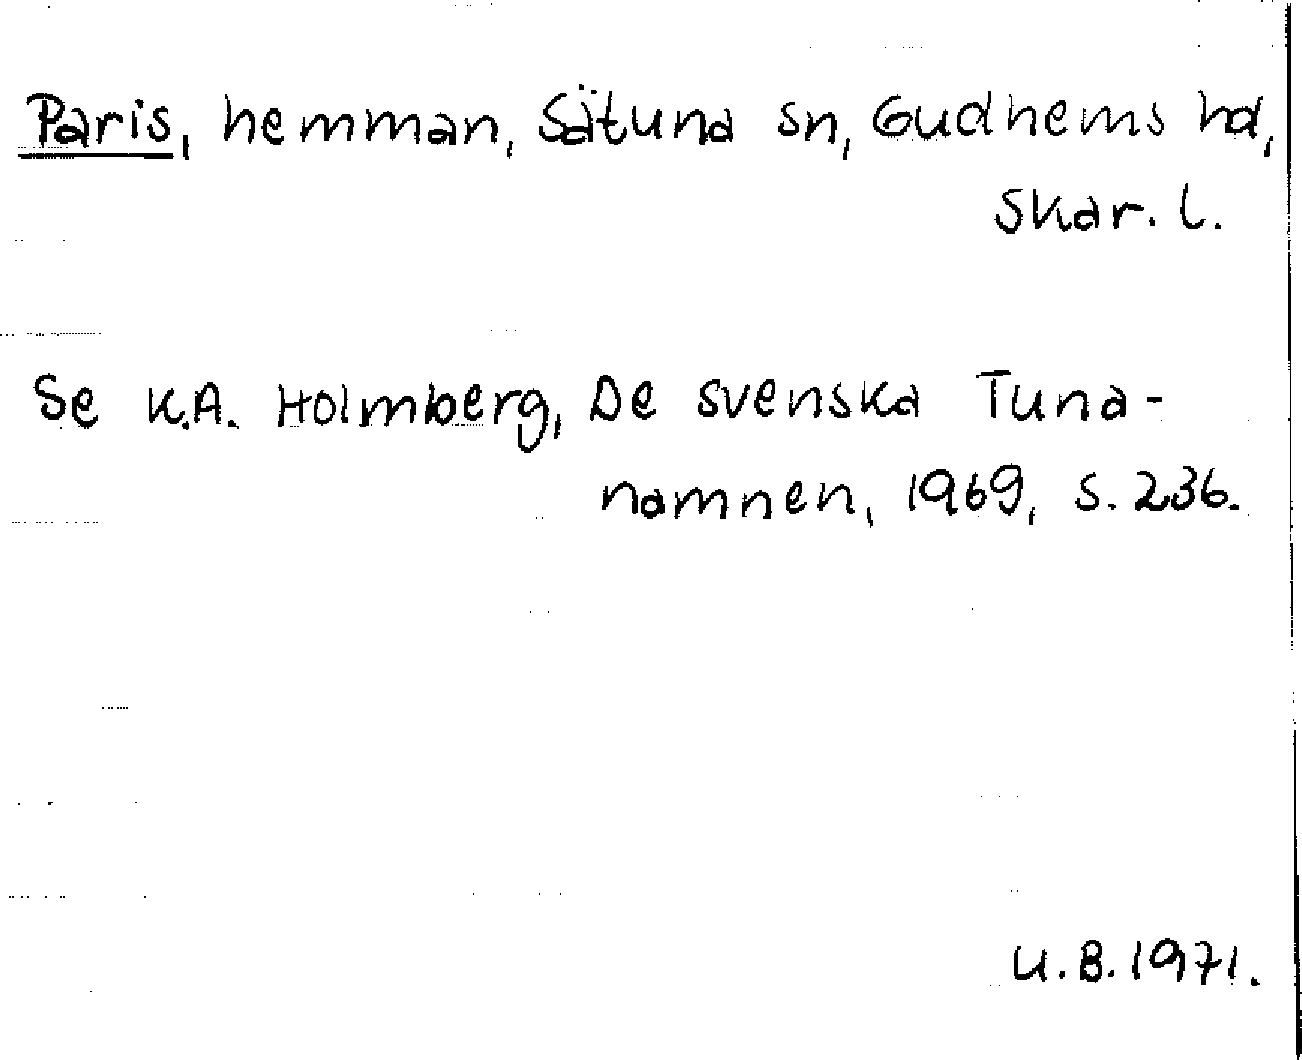 Paris, hemman, Sätuna sn, Gudhems hd,
Skar. l.
Se K.A. Holmberg, De svenska Tuna-
namnen, 1969, s. 236.
U.B. 1971.